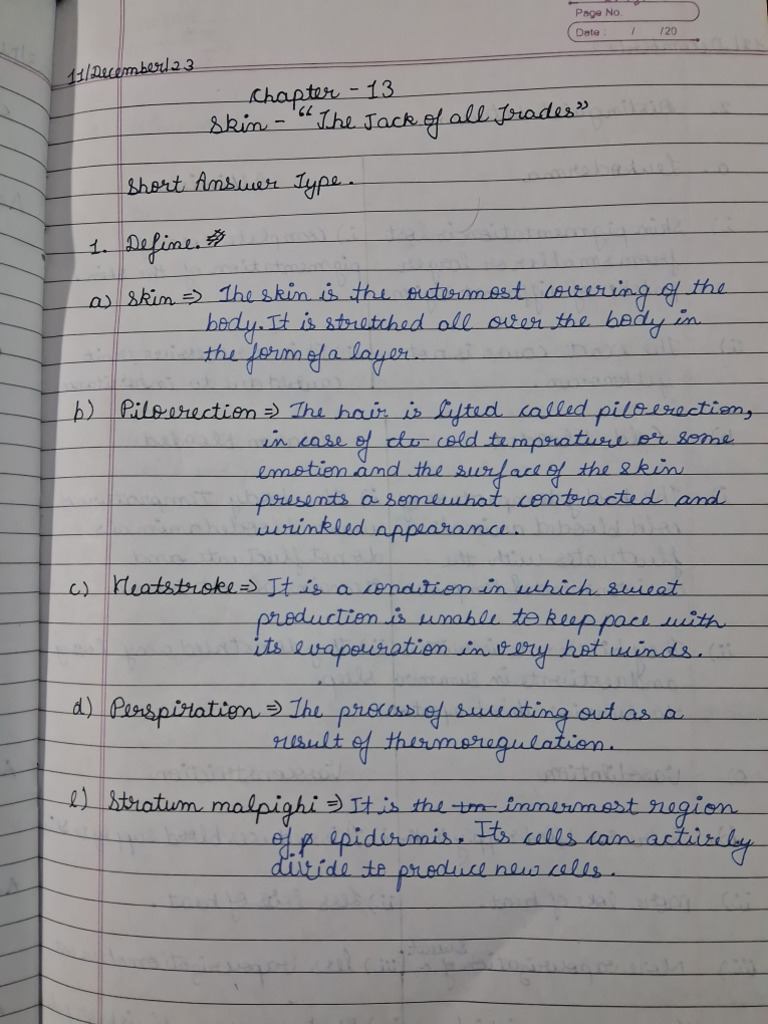 Page No.
Date : / /20
11/December/23
Chapter - 13
Skin - "The Jack of all Trades"
Short Answer Type.
1. Define.
a) Skin => The skin is the outermost covering of the
body. It is stretched all over the body in
the form of a layer.
b) Piloerection => The hair is lifted called piloerection,
in case of cold temprature or some
emotion and the surface of the skin
presents a somewhat contracted and
wrinkled appearance.
c) Heatstroke => It is a condition in which sweat
production is unable to keep pace with
its evapouration in very hot winds.
d) Perspiration => The process of sweating out as a
result of thermoregulation.
e) Stratum malpighi => It is the innermost region
of epidermis. Its cells can actively
divide to produce new cells.